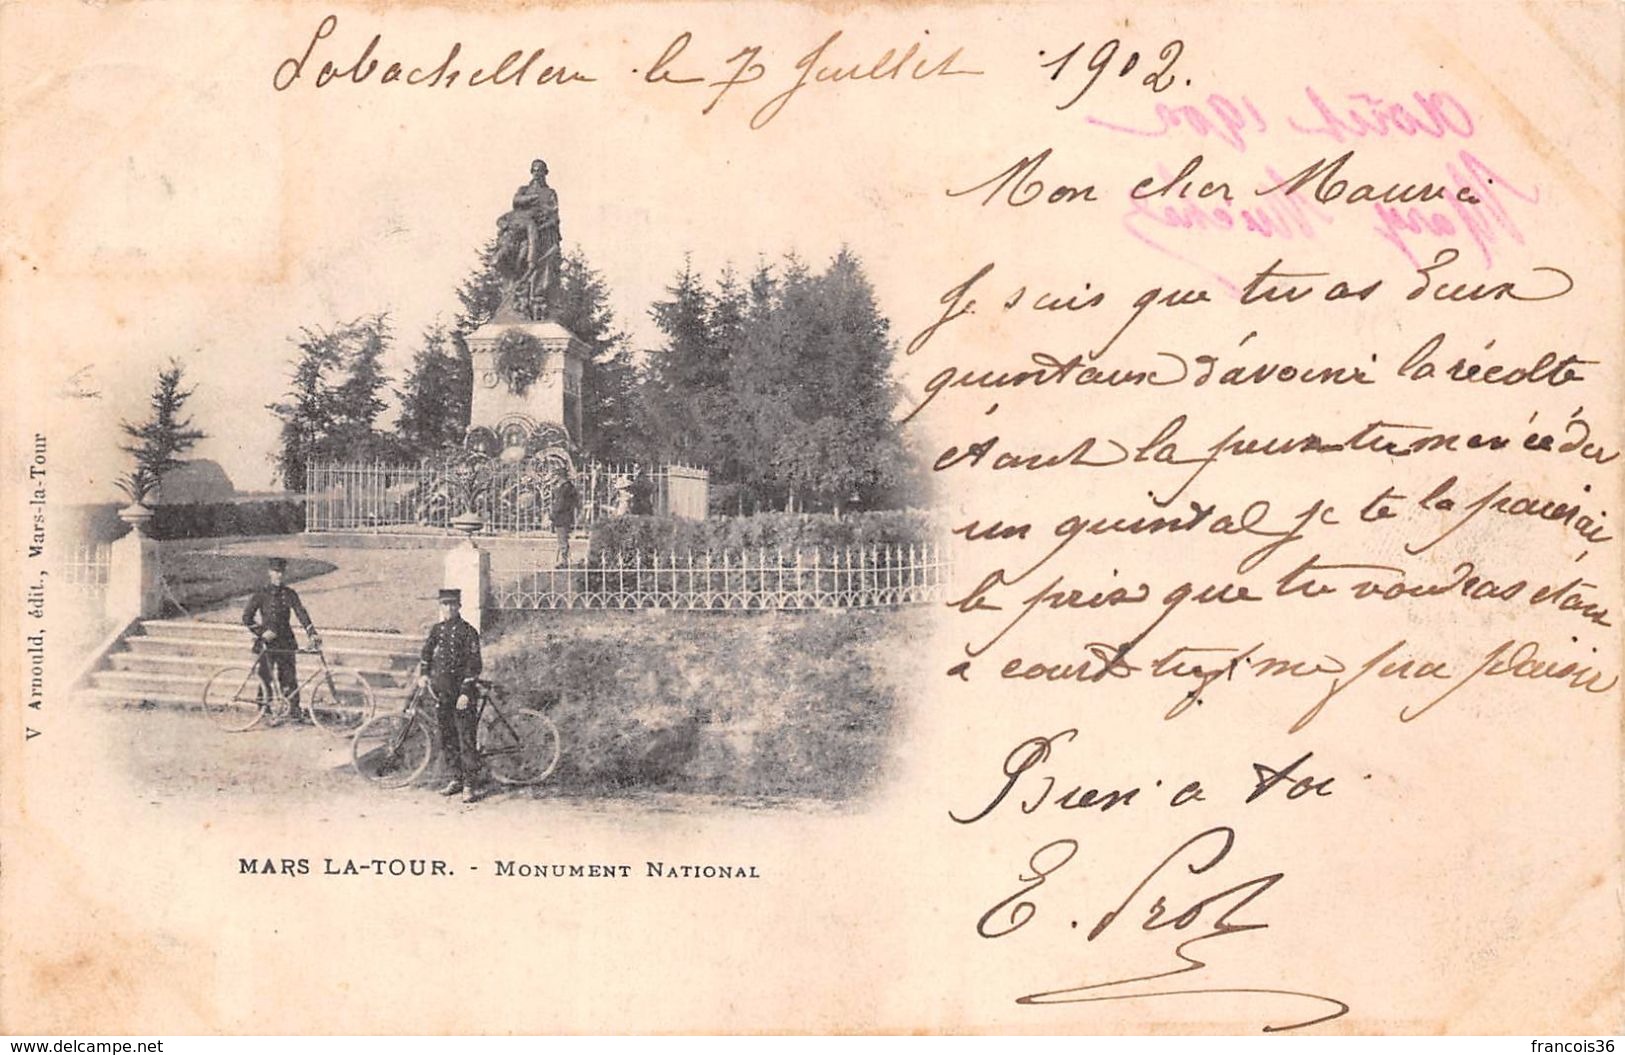 Labachellerie le 7 Juillet 1902.
Mon cher Maurice
Je sais que tu as deux
quintaux d'avoine la récolte
étant la peux tu m'en céder
un quintal je te la paierai
le prix que tu voudras étant
a court tu me fera plaisir
Bien a toi
E. Prot
V Arnould, édit., Mars-la-Tour
MARS LA-TOUR. - MONUMENT NATIONAL
delcampe.net
francois36